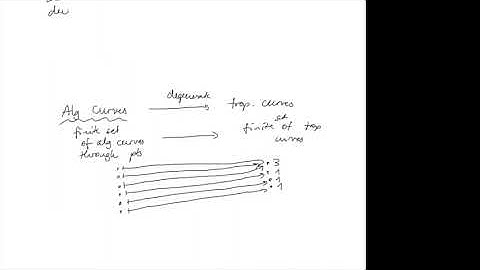 dev
degenerate
Alg Curves trop. curves
finite set finite set of trop
of alg curves curves
through pts
3
1
1
1